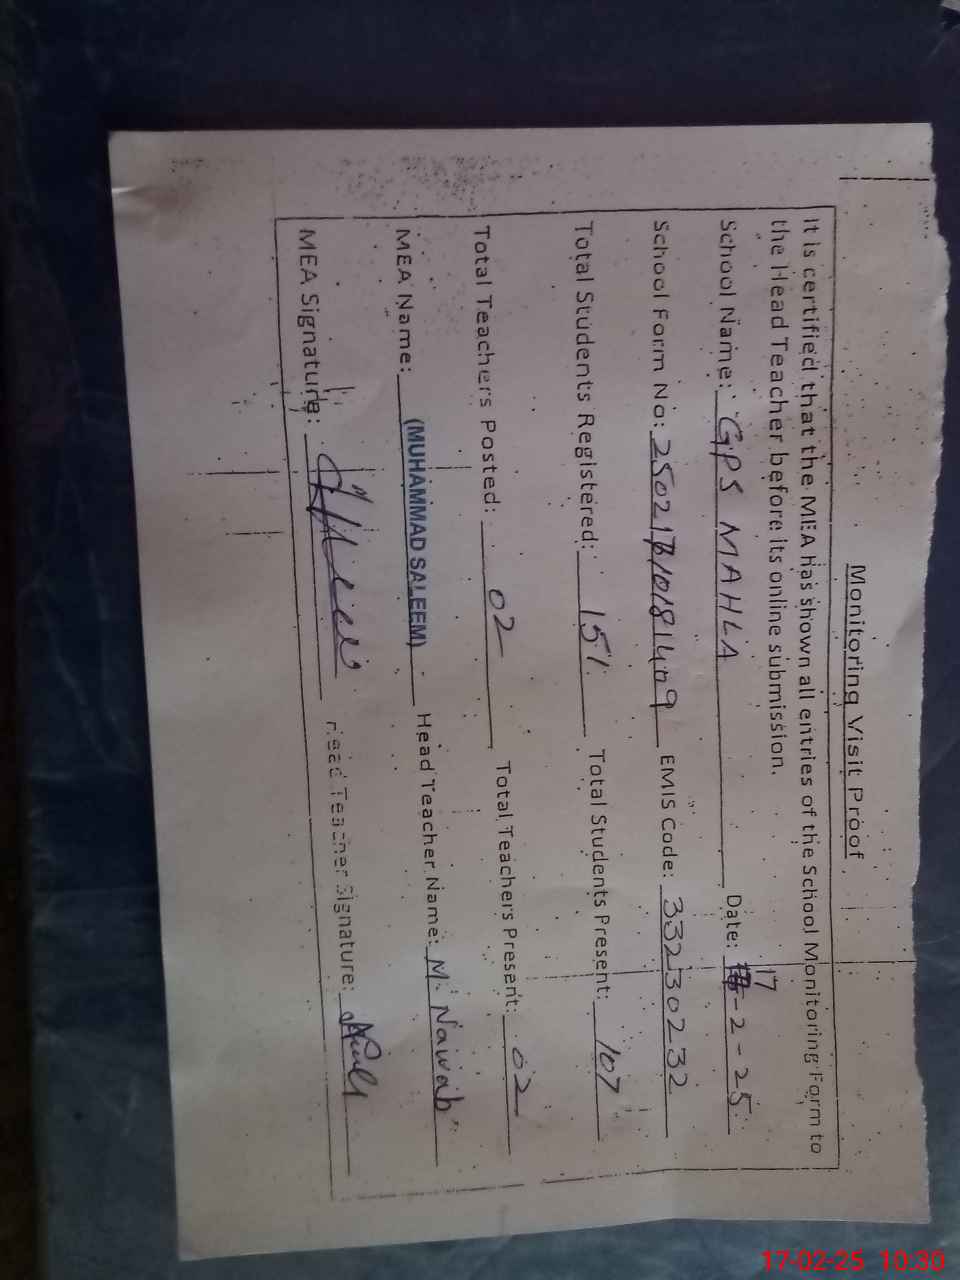 Monitoring Visit Proof
It is certified that the MEA has shown all entries of the School Monitoring Form to
the Head Teacher before its online submission.
School Name: GPS MAHLA Date: 17-2-25
School Form No: EMIS Code: 33230232
Total Students Registered: 151 Total Students Present: 107
Total Teachers Posted: 02 Total Teachers Present: 02
MEA Name: (MUHAMMAD SALEEM) Head Teacher Name: M. Nawab
MEA Signature: Head Teacher Signature:
17-02-25 10:30